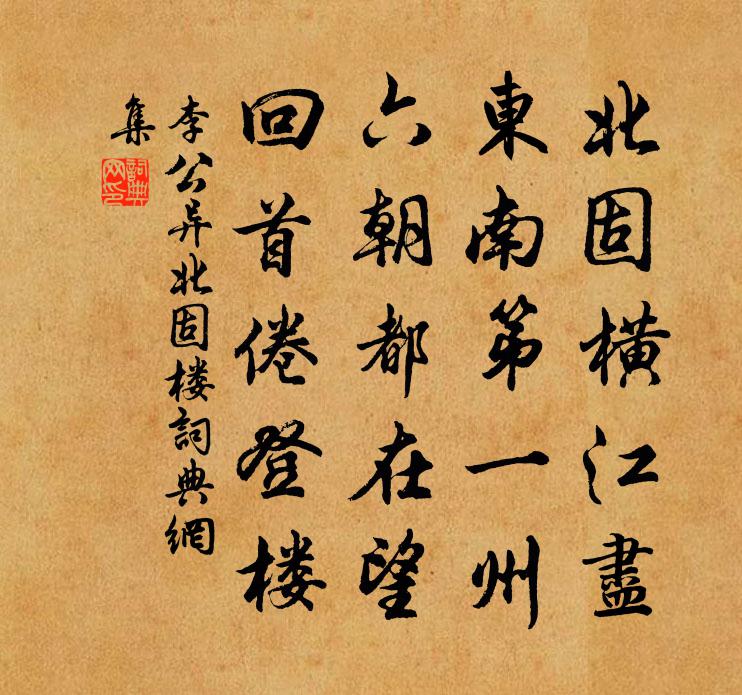 北固橫江盡
東南第一州
六朝都在望
回首倦登楼
李公异北固楼詞典網
集
詞典網印